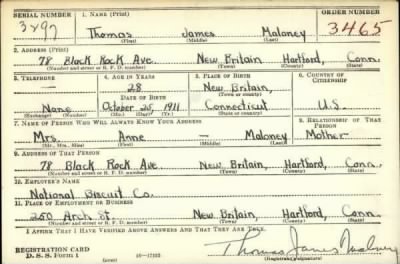 SERIAL NUMBER 1. NAME (Print) ORDER NUMBER
Thomas James Maloney 3465
(First) (Middle) (Last)
2. ADDRESS (Print)
78 Black Rock Ave. New Britain, Hartford, Conn.
(Number and street or R. F. D. number) (Town) (County) (State)
3. TELEPHONE 4. AGE IN YEARS 5. PLACE OF BIRTH 6. COUNTRY OF CITIZENSHIP
— 28 New Britain,
DATE OF BIRTH (Town or county)
None October 25, 1911 Connecticut U.S.
(Exchange) (Number) (Mo.) (Day) (Yr.) (State or country)
7. NAME OF PERSON WHO WILL ALWAYS KNOW YOUR ADDRESS 8. RELATIONSHIP OF THAT PERSON
Mrs. Anne — Maloney Mother
(Mr., Mrs., Miss) (First) (Middle) (Last)
9. ADDRESS OF THAT PERSON
78 Black Rock Ave. New Britain, Hartford, Conn.
(Number and street or R. F. D. number) (Town) (County) (State)
10. EMPLOYER'S NAME
National Biscuit Co.
11. PLACE OF EMPLOYMENT OR BUSINESS
250 Arch St. New Britain, Hartford, Conn.
(Number and street or R. F. D. number) (Town) (County) (State)
I AFFIRM THAT I HAVE VERIFIED ABOVE ANSWERS AND THAT THEY ARE TRUE.
REGISTRATION CARD Thomas James Maloney
D. S. S. FORM 1 (over) 16—17105 (Registrant's signature)